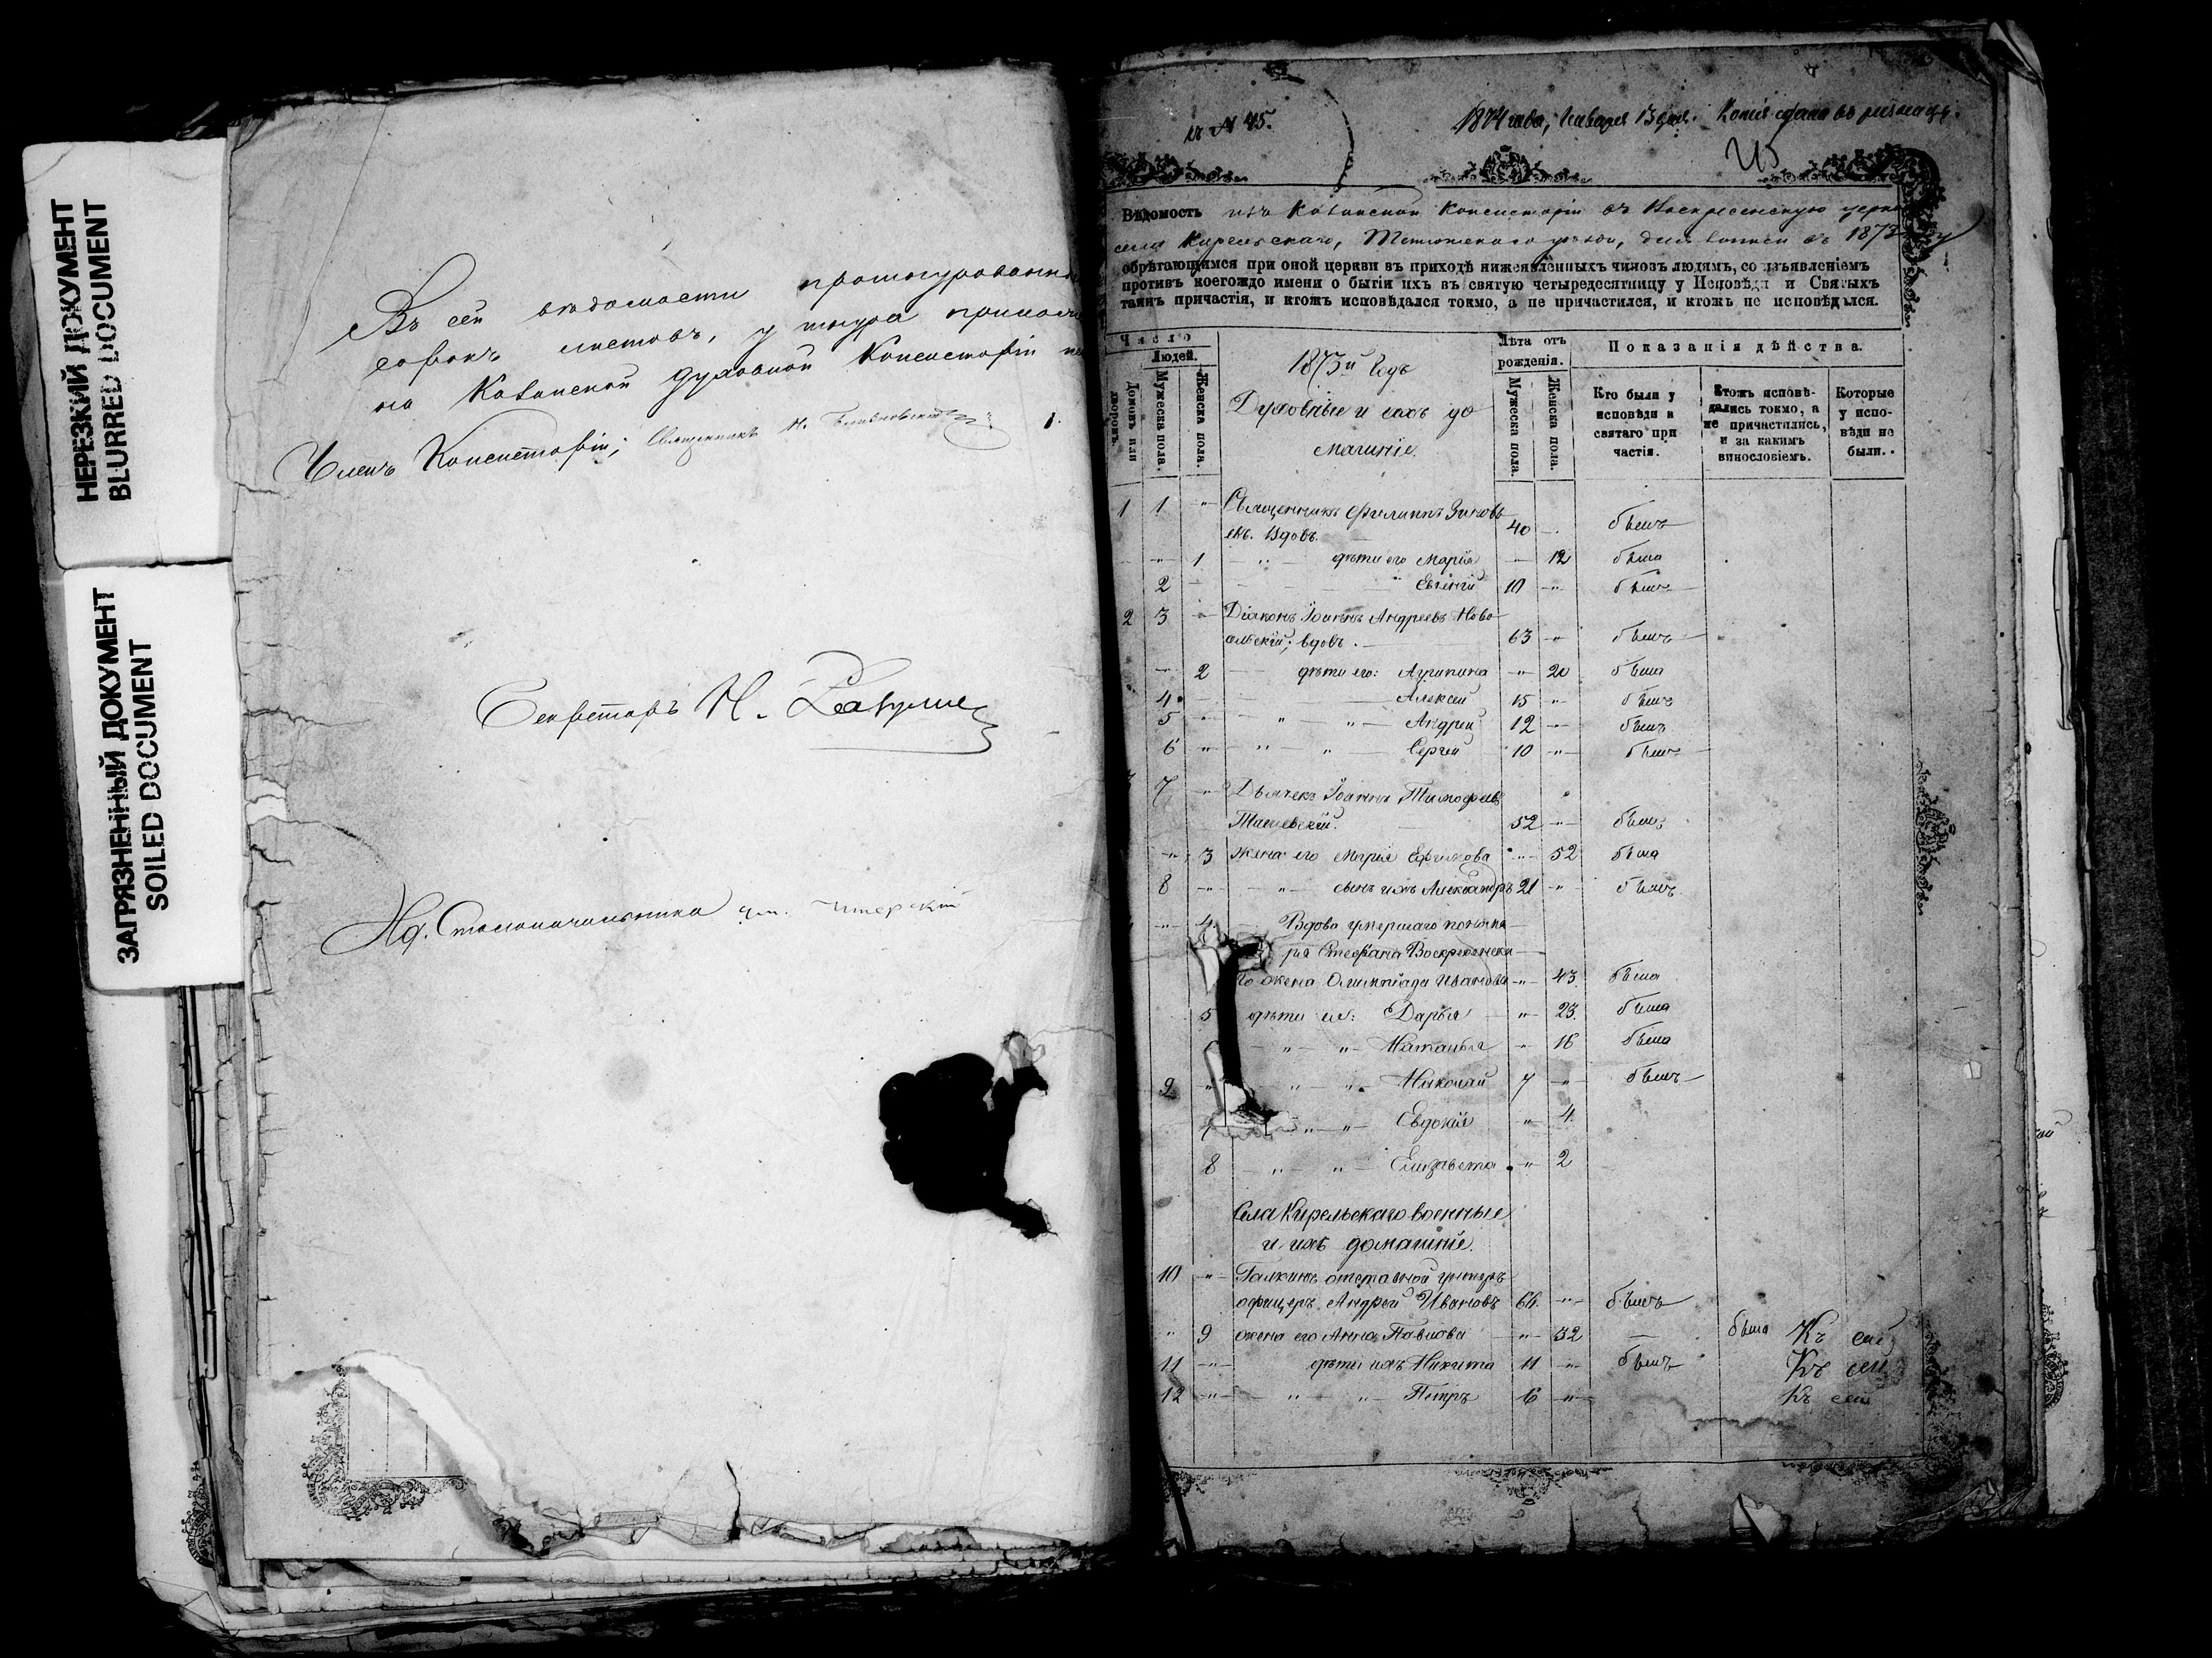 НЕРЕЗКИЙ ДОКУМЕНТ
BLURRED DOCUMENT
ЗАГРЯЗНЕННЫЙ ДОКУМЕНТ
SOILED DOCUMENT
Въ сей ведомости
сорокъ листовъ, у
на Казанской Духовной Консисторіи
Членъ Консисторіи; Священникъ Н.
Секретарь Н.
Столоначальника
№ 45.
1874 года, Января 13 дня. Копія сдана въ
Вѣдомость изъ Казанской Консисторіи въ Воскресенскую
села Кирельскаго, Тетюшскаго уѣзда, для записи въ 1873
обрѣтающимся при оной церкви въ приходѣ нижеявленныхъ чиновъ людямъ, со изъявленіемъ
противъ коегождо имени о бытіи ихъ въ святую четыредесятницу у Исповѣди и Святыхъ
таинъ причастія, и ктожъ исповѣдался токмо, а не причастился, и ктожъ не исповѣдался.
Число
Людей.
Домовъ или дворовъ.
Мужеска пола.
Женска пола.
1873й Годъ
Духовные и ихъ до
машніе.
Лѣта отъ рожденія.
Мужеска пола.
Женска пола.
Показанія дѣйства.
Кто были у исповѣди и святаго причастія.
Ктожъ исповѣдались токмо, а не причастились, и за какимъ винословіемъ.
Которые у исповѣди не были.
1 1 " Священникъ Филиппъ
евъ. Вдовъ. 40 былъ
" 1 " дѣти его Марія 12 была
2 Евгеній 10 " былъ
2 3 Діаконъ Іоаннъ Андреевъ Ново
вдовъ. 63 " былъ
2 дѣти его: Агрипина " 20 была
4 Алексей 15 " былъ
5 " " " Андрей 12 былъ
6 " " " Сергей 10 " былъ
7 " Дьячекъ Іоаннъ Тимофеевъ
52 " былъ
" 3 жена его Марія Ефимова " 52 была
8 " " сынъ ихъ Александръ 21 " былъ
" 4 Вдова умершаго понома
ря Стефана Воскресенска
го жена Олимпіада Иванова " 43 была
5 дѣти ея: Дарья " 23 была
" " Наталья " 16 была
9 " " " Николай 7 былъ
7 " " Евдокія " 4
8 " " Елизавета " 2
Села Кирельскаго военные
и ихъ домашніе.
10 " Галкинъ отставной унтеръ
офицеръ Андрей Ивановъ 66 " былъ
" 9 жена его Анна Павлова " 32 — была Къ
11 " дѣти ихъ Никита 11 " былъ Къ
12 " " " Петръ 6 " Къ